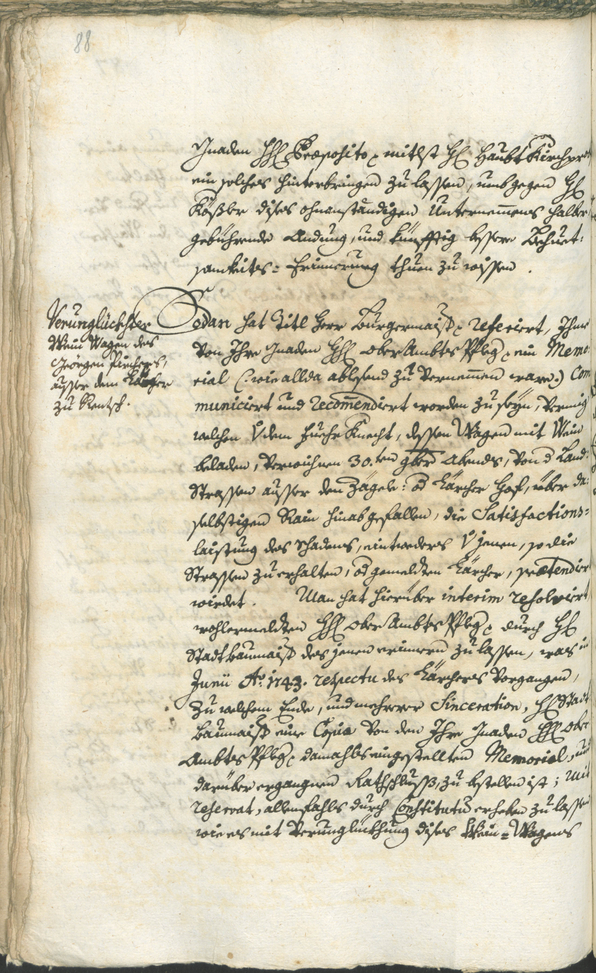 88
Gnaden HH. Præposito, mitlst H. Haubt Kirchpr
ein solches hinterbringen zu lassen, umb gegen H.
Kößler dises ohnanständigen Unternemmens halber
gebührende Andung, und künfftig bessere Behuet-
samkeits-Erinnerung thuen zu wissen.
Verunglückhter
Wein Wagen des
Georgen
ausser dem
zu Rentsch.
Sodan hat Titl Herr Burgermaist. referiert, Ihme
von Ihro Gnaden HH. ober Ambts Pfleg. ein Memo
rial (: wie allda ablesend zu vernemmen ware :) Com
municiert und recom̄endiert worden zu seyn, vermög
welchen von dem Fuehr Knecht, dessen Wagen mit Wein
beladen, verwichnen 30.ten 9ber Abends, von der Land-
Strassen ausser den Zägele: od Kärcher Hof, über da-
selbstigen Rain hinabgefallen, die Satisfactions-
laistung des Schadens, eintweders von jenen, so die
Strassen zu erhalten, od gemeldten Kärcher, prætendiert
wirdet. Man hat hierüber interim resolviert
wohlermeldten HH. ober Ambts Pfleg. durch H.
Stadt Baumaist. des jenen erinnern zu lassen, was in
Junii Aō. 1743. respectu des Kärchers vorgangen,
zu welchem Ende, und mehrerer Sinceration, H. Stadt
Baumaist. eine Copia von den Ihro Gnaden HH. ober
Ambts Pfleg. damahls eingestellten Memorial, und
darüber ergangnen Rathschluss, zu bestellen ist; mit
referat, allenfahls durch Constituta erheben zu lassen
wie es mit Verunglückhung dises Wein-Wagens